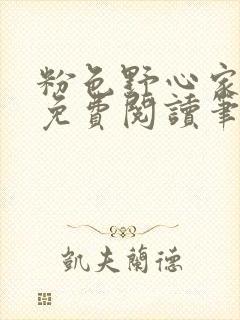 粉色野心家
免費閱讀筆
凱夫蘭德